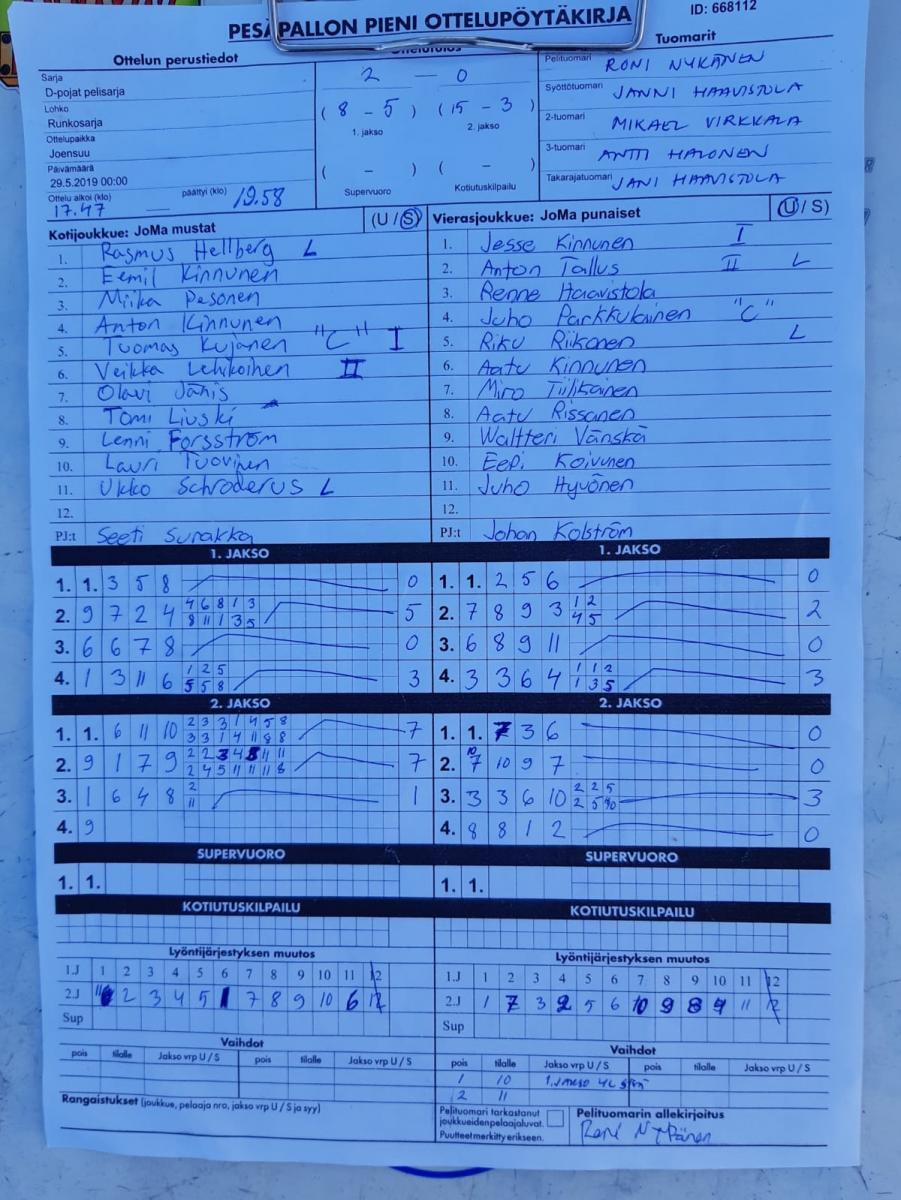 PESÄPALLON PIENI OTTELUPÖYTÄKIRJA
ID: 668112
Ottelun perustiedot
Sarja
D-pojat pelisarja
Lohko
Runkosarja
Ottelupaikka
Joensuu
Päivämäärä
29.5.2019 00:00
Ottelu alkoi (klo) päättyi (klo)
17.47 — 19.58
Ottelutulos
2 — 0
( 8 - 5 ) ( 15 - 3 )
1. jakso 2. jakso
( - ) ( - )
Supervuoro Kotiutuskilpailu
Tuomarit
Pelituomari RONI NYKÄNEN
Syöttötuomari JANNI HAAVISTOLA
2-tuomari MIKAEL VIRKKALA
3-tuomari ANTTI HALONEN
Takarajatuomari JANI HAAVISTOLA
Kotijoukkue: JoMa mustat (U/S)
1. Rasmus Hellberg L
2. Eemil Kinnunen
3. Miika Pesonen
4. Anton Kinnunen
5. Tuomas Kujanen "C" I
6. Veikka Lehikoinen II
7. Olavi Jänis
8. Tomi Livski
9. Lenni Forsström
10. Lauri Tuovinen
11. Ukko Schroderus L
12.
PJ:t Seeti Surakka
Vierasjoukkue: JoMa punaiset (U/S)
1. Jesse Kinnunen I
2. Anton Tallus II L
3. Renne Haavistola
4. Juho Parkkulainen "C"
5. Riku Riikonen L
6. Aatu Kinnunen
7. Miro Tiilikainen
8. Aatu Rissanen
9. Waltteri Vänskä
10. Eepi Koivunen
11. Juho Hyvönen
12.
PJ:t Johan Kolström
1. JAKSO
1. 1. 3 5 8 0
2. 9 7 2 4 4 6 8 1 3 5
8 11 1 3 5
3. 6 6 7 8 0
4. 1 3 11 6 1 2 5 3
5 5 8
2. JAKSO
1. 1. 6 11 10 2 3 3 1 4 5 8 7
3 3 1 4 11 8 8
2. 9 1 7 9 2 2 3 4 5 11 11 7
2 4 5 11 11 11 8
3. 1 6 4 8 2 1
11
4. 9
SUPERVUORO
1. 1.
KOTIUTUSKILPAILU
1. JAKSO
1. 1. 2 5 6 0
2. 7 8 9 3 1 2 2
4 5
3. 6 8 9 11 0
4. 3 3 6 4 1 1 2 3
1 3 5
2. JAKSO
1. 1. 7 3 6 0
2. 7 10 9 7 0
3. 3 3 6 10 2 2 5 3
2 5 10
4. 8 8 1 2 0
SUPERVUORO
1. 1.
KOTIUTUSKILPAILU
Lyöntijärjestyksen muutos
1.J 1 2 3 4 5 6 7 8 9 10 11 12
2.J 11 2 3 4 5 1 7 8 9 10 6 12
Sup
Vaihdot
pois tilalle Jakso vrp U / S pois tilalle Jakso vrp U / S
Rangaistukset (joukkue, pelaaja nro, jakso vrp U / S ja syy)
Lyöntijärjestyksen muutos
1.J 1 2 3 4 5 6 7 8 9 10 11 12
2.J 1 7 3 2 5 6 10 9 8 4 11 12
Sup
Vaihdot
pois tilalle Jakso vrp U / S pois tilalle Jakso vrp U / S
1 10 1. jakso
2 11
Pelituomari tarkastanut
joukkueidenpelaajaluvat.
Puutteet merkitty erikseen.
Pelituomarin allekirjoitus
Roni Nykänen